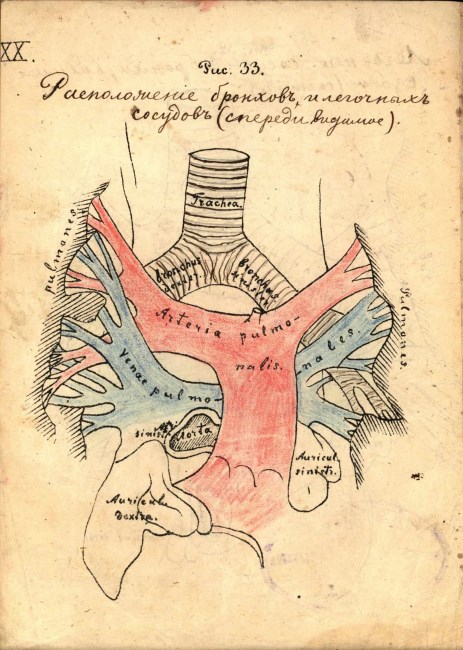 XX.
Рис. 33.
Расположеніе бронховъ, и легочныхъ
сосудовъ (спереди видимое).
Trachea.
pulmones
Bronchus
dexter.
Bronchus
Pulmones.
Arteria pulmo-
nalis.
Venae pulmo-
nales.
sinistr.
Aorta
Auricul.
sinistr.
Auricul.
dextra.